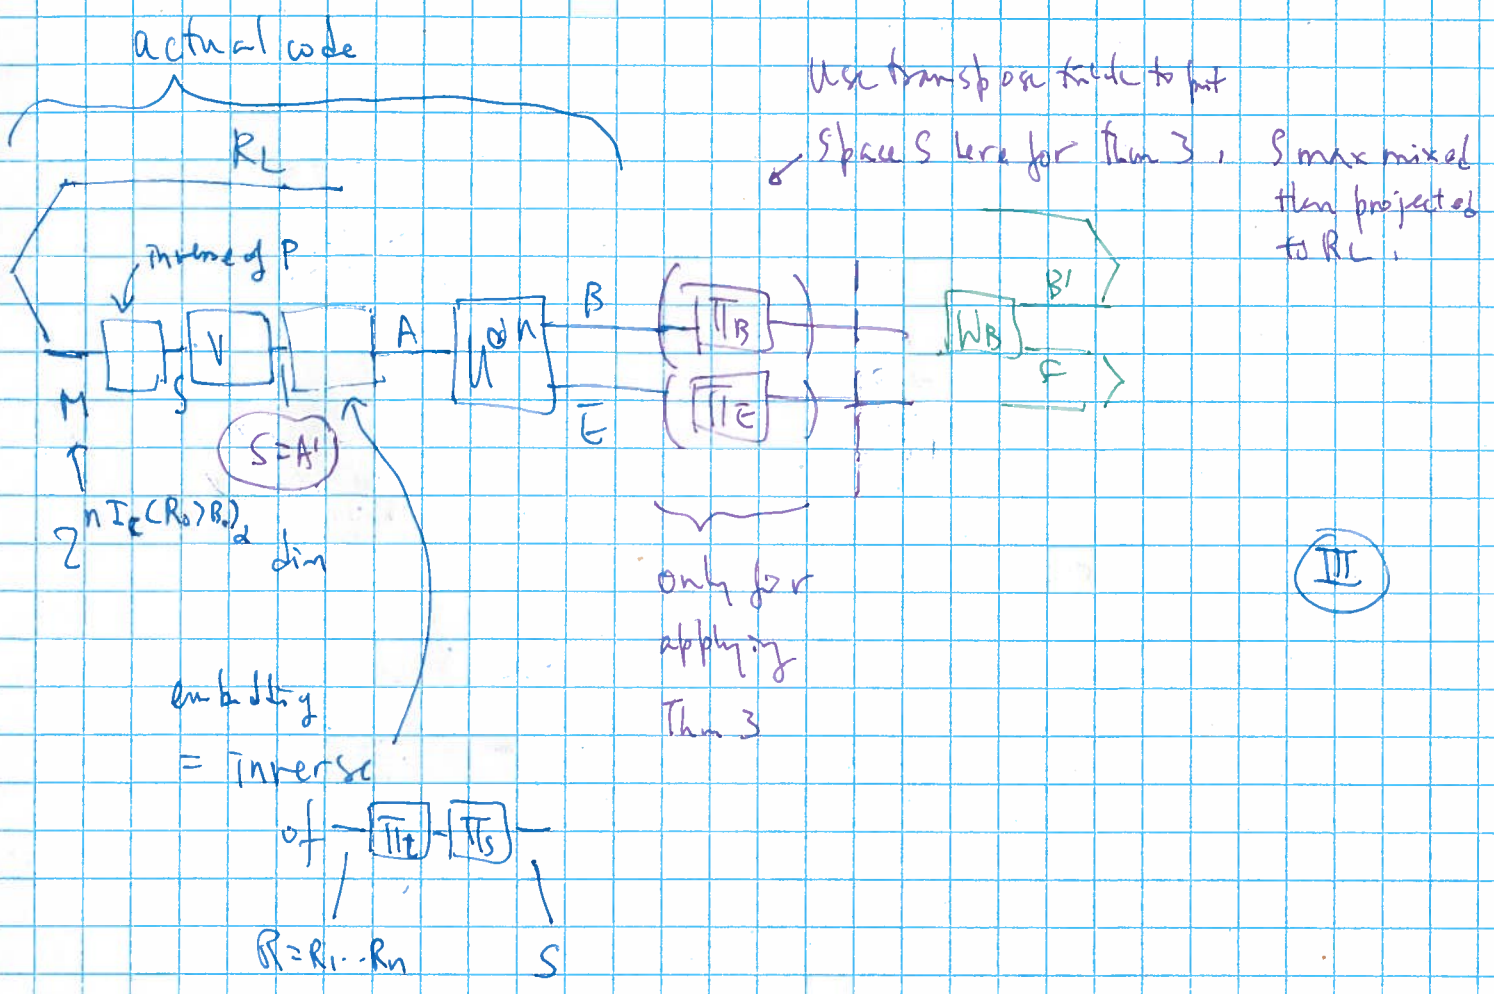 actual code
Use transpose trick to put
space S here for Thm 3.
S max mixed
then projected
to RL.
RL
inverse of P
V
A
U⊗n
B
E
(ΠB)
(ΠE)
WB
B'
F
M
S
S=A'
2^nIc(R0>B0)α dim
only for
applying
Thm 3
III
embedding
= inverse
of Πt Πs
R=R1...Rn
S